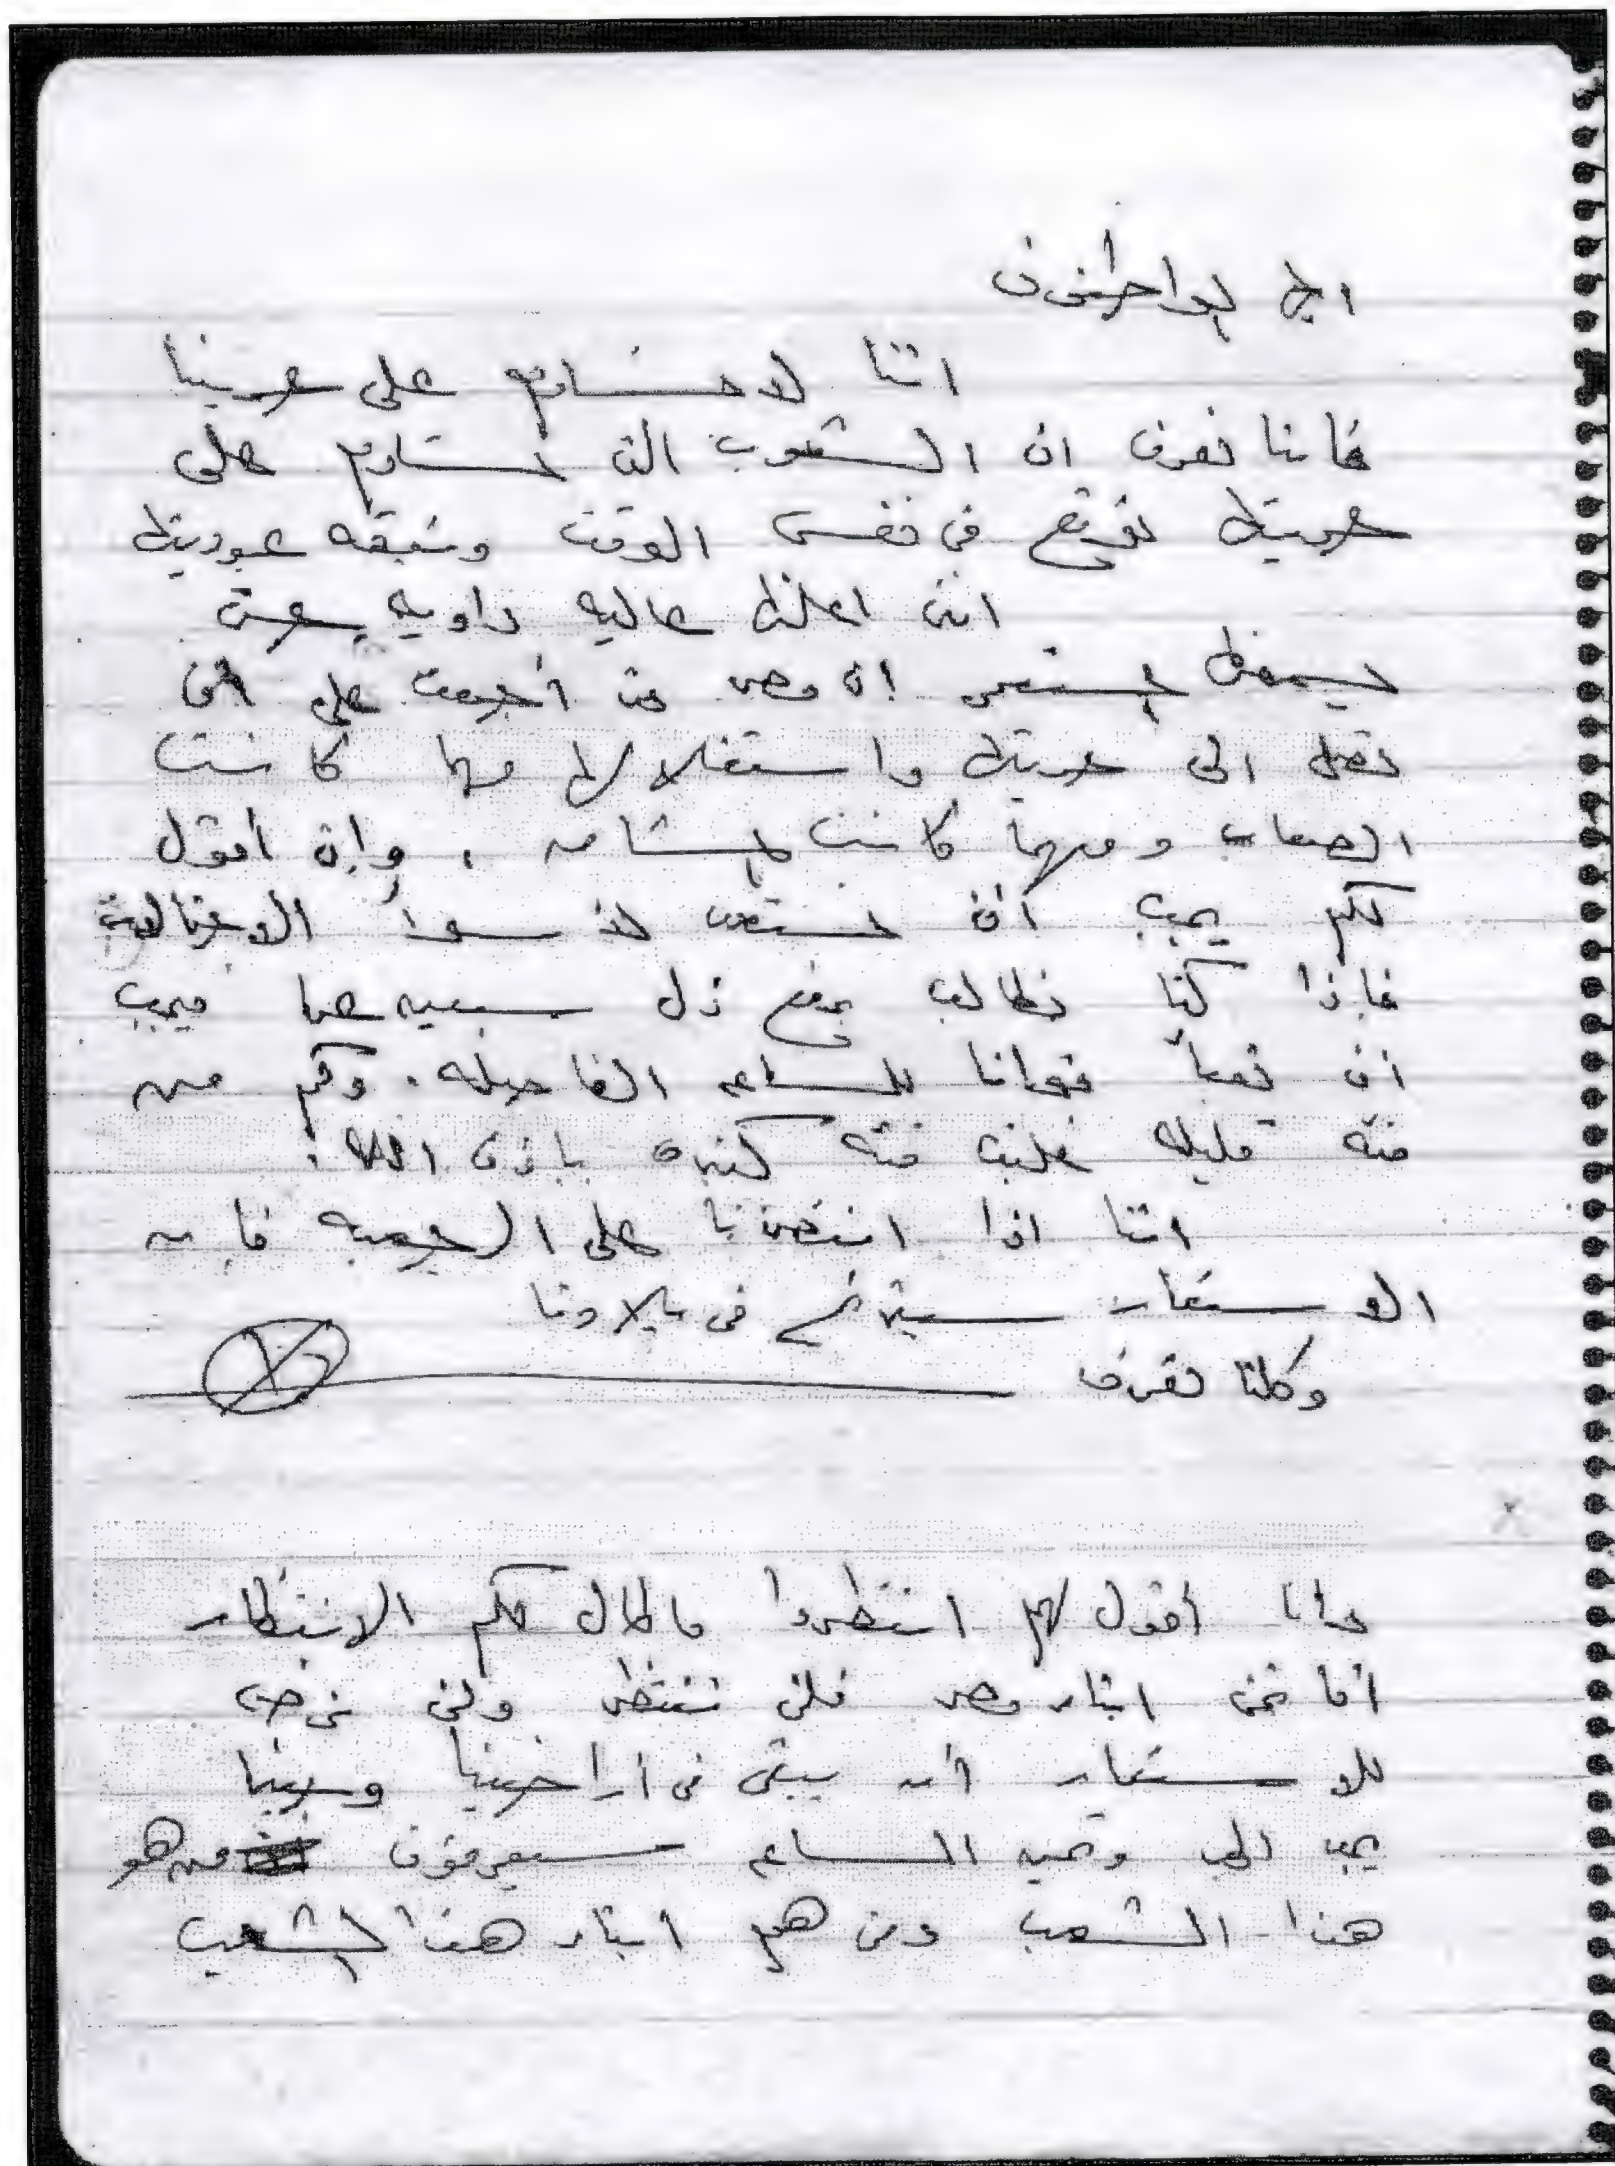 أيها المواطنون
اننا لا نساوم على حريتنا
فاننا نعرف ان الشعوب التى تساوم على
حريتها توقع فى نفس الوقت وثيقه عبوديتها
اننى اعلنها عاليه داويه حتى
ليسمعها المستعمر ان مصر قد أجمعت على ان
تصل الى حريتها واستقلالها مهما كانت
الصعاب ومهما كانت المشاق . وإنى أقول
لكم يجب أن نستعد لأسوأ الاحتمالات
فاذا كنا نطالب بدفع ذل سبعين عاما فيجب
أن تعبأ قوانا للساعه الفاصله . وكم من
فئه قليله غلبت فئه كثيره باذن الله .
اننا اذا انتصرنا على الرجعيه فان
الاستعمار سينهار فى بلادنا
وكلنا نعرف
وأنا أقول لهم انتظروا ما طال لكم الانتظار
أما نحن ابناء مصر فلن ننتظر ولن نرضى
للاستعمار أن يبقى فى أراضينا وحينما
يجد الجد وتحين الساعه سيعرفون من هو
هذا الشعب ومن هم ابناء هذا الشعب